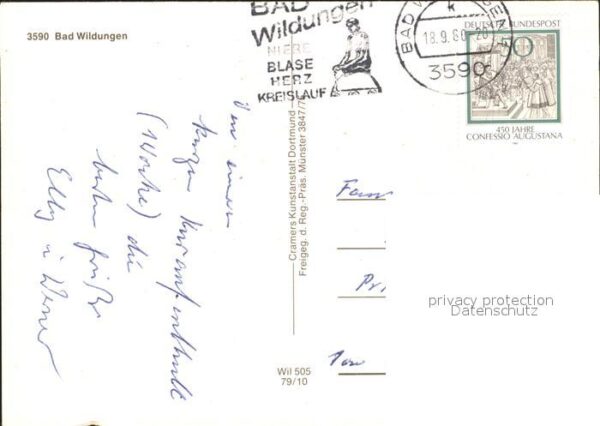 3590 Bad Wildungen
BAD
Wildungen
NIERE
BLASE
HERZ
KREISLAUF
BAD W
18.9.80-20
k
3590
DEUTSCHE BUNDESPOST
450 JAHRE
CONFESSIO AUGUSTANA
Von einem
kurzen Kuraufenthalt
(1 Woche) die
besten Grüße
Elly u Werner
Cramers Kunstanstalt Dortmund
Freigeg. d. Reg.-Präs. Münster 3847/7
Fam
privacy protection
Datenschutz
Wil 505
79/10